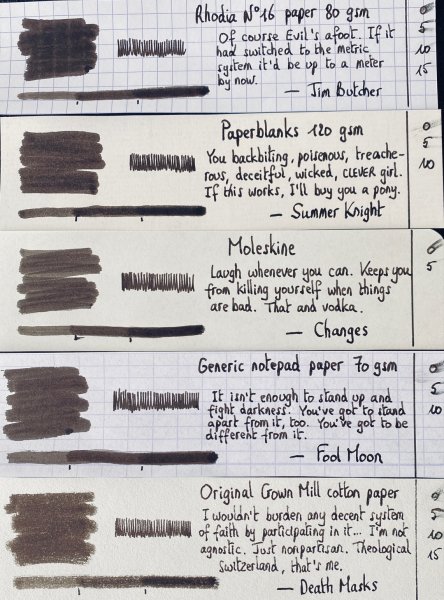 Rhodia N°16 paper 80 gsm
Of course Evil's afoot. If it
had switched to the metric
system it'd be up to a meter
by now.
— Jim Butcher
0
5
10
15
Paperblanks 120 gsm
You backbiting, poisonous, treache-
rous, deceitful, wicked, CLEVER girl.
If this works, I'll buy you a pony.
— Summer Knight
0
5
10
Moleskine
Laugh whenever you can. Keeps you
from killing yourself when things
are bad. That and vodka.
— Changes
0
5
Generic notepad paper 70 gsm
It isn't enough to stand up and
fight darkness. You've got to stand
apart from it, too. You've got to be
different from it.
— Fool Moon
0
5
10
Original Crown Mill cotton paper
I wouldn't burden any decent system
of faith by participating in it... I'm not
agnostic. Just nonpartisan. Theological
Switzerland, that's me.
— Death Masks
0
5
10
15